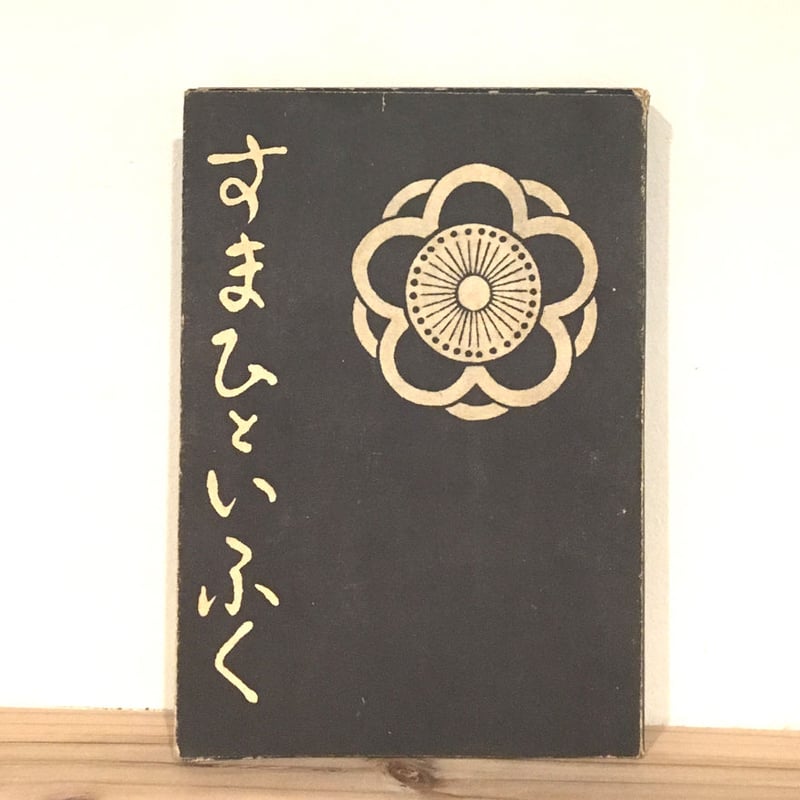 すまひといふく